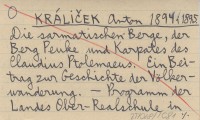 O KRÁLÍČEK Anton 1894/1895
Die sarmatischen Berge, der
Berg Peuke und Karpates des
Claudius Ptolemaeus. Ein Bei-
trag zur Geschichte der Völker-
wanderung. – Programm der
Landes Ober-Realschule in